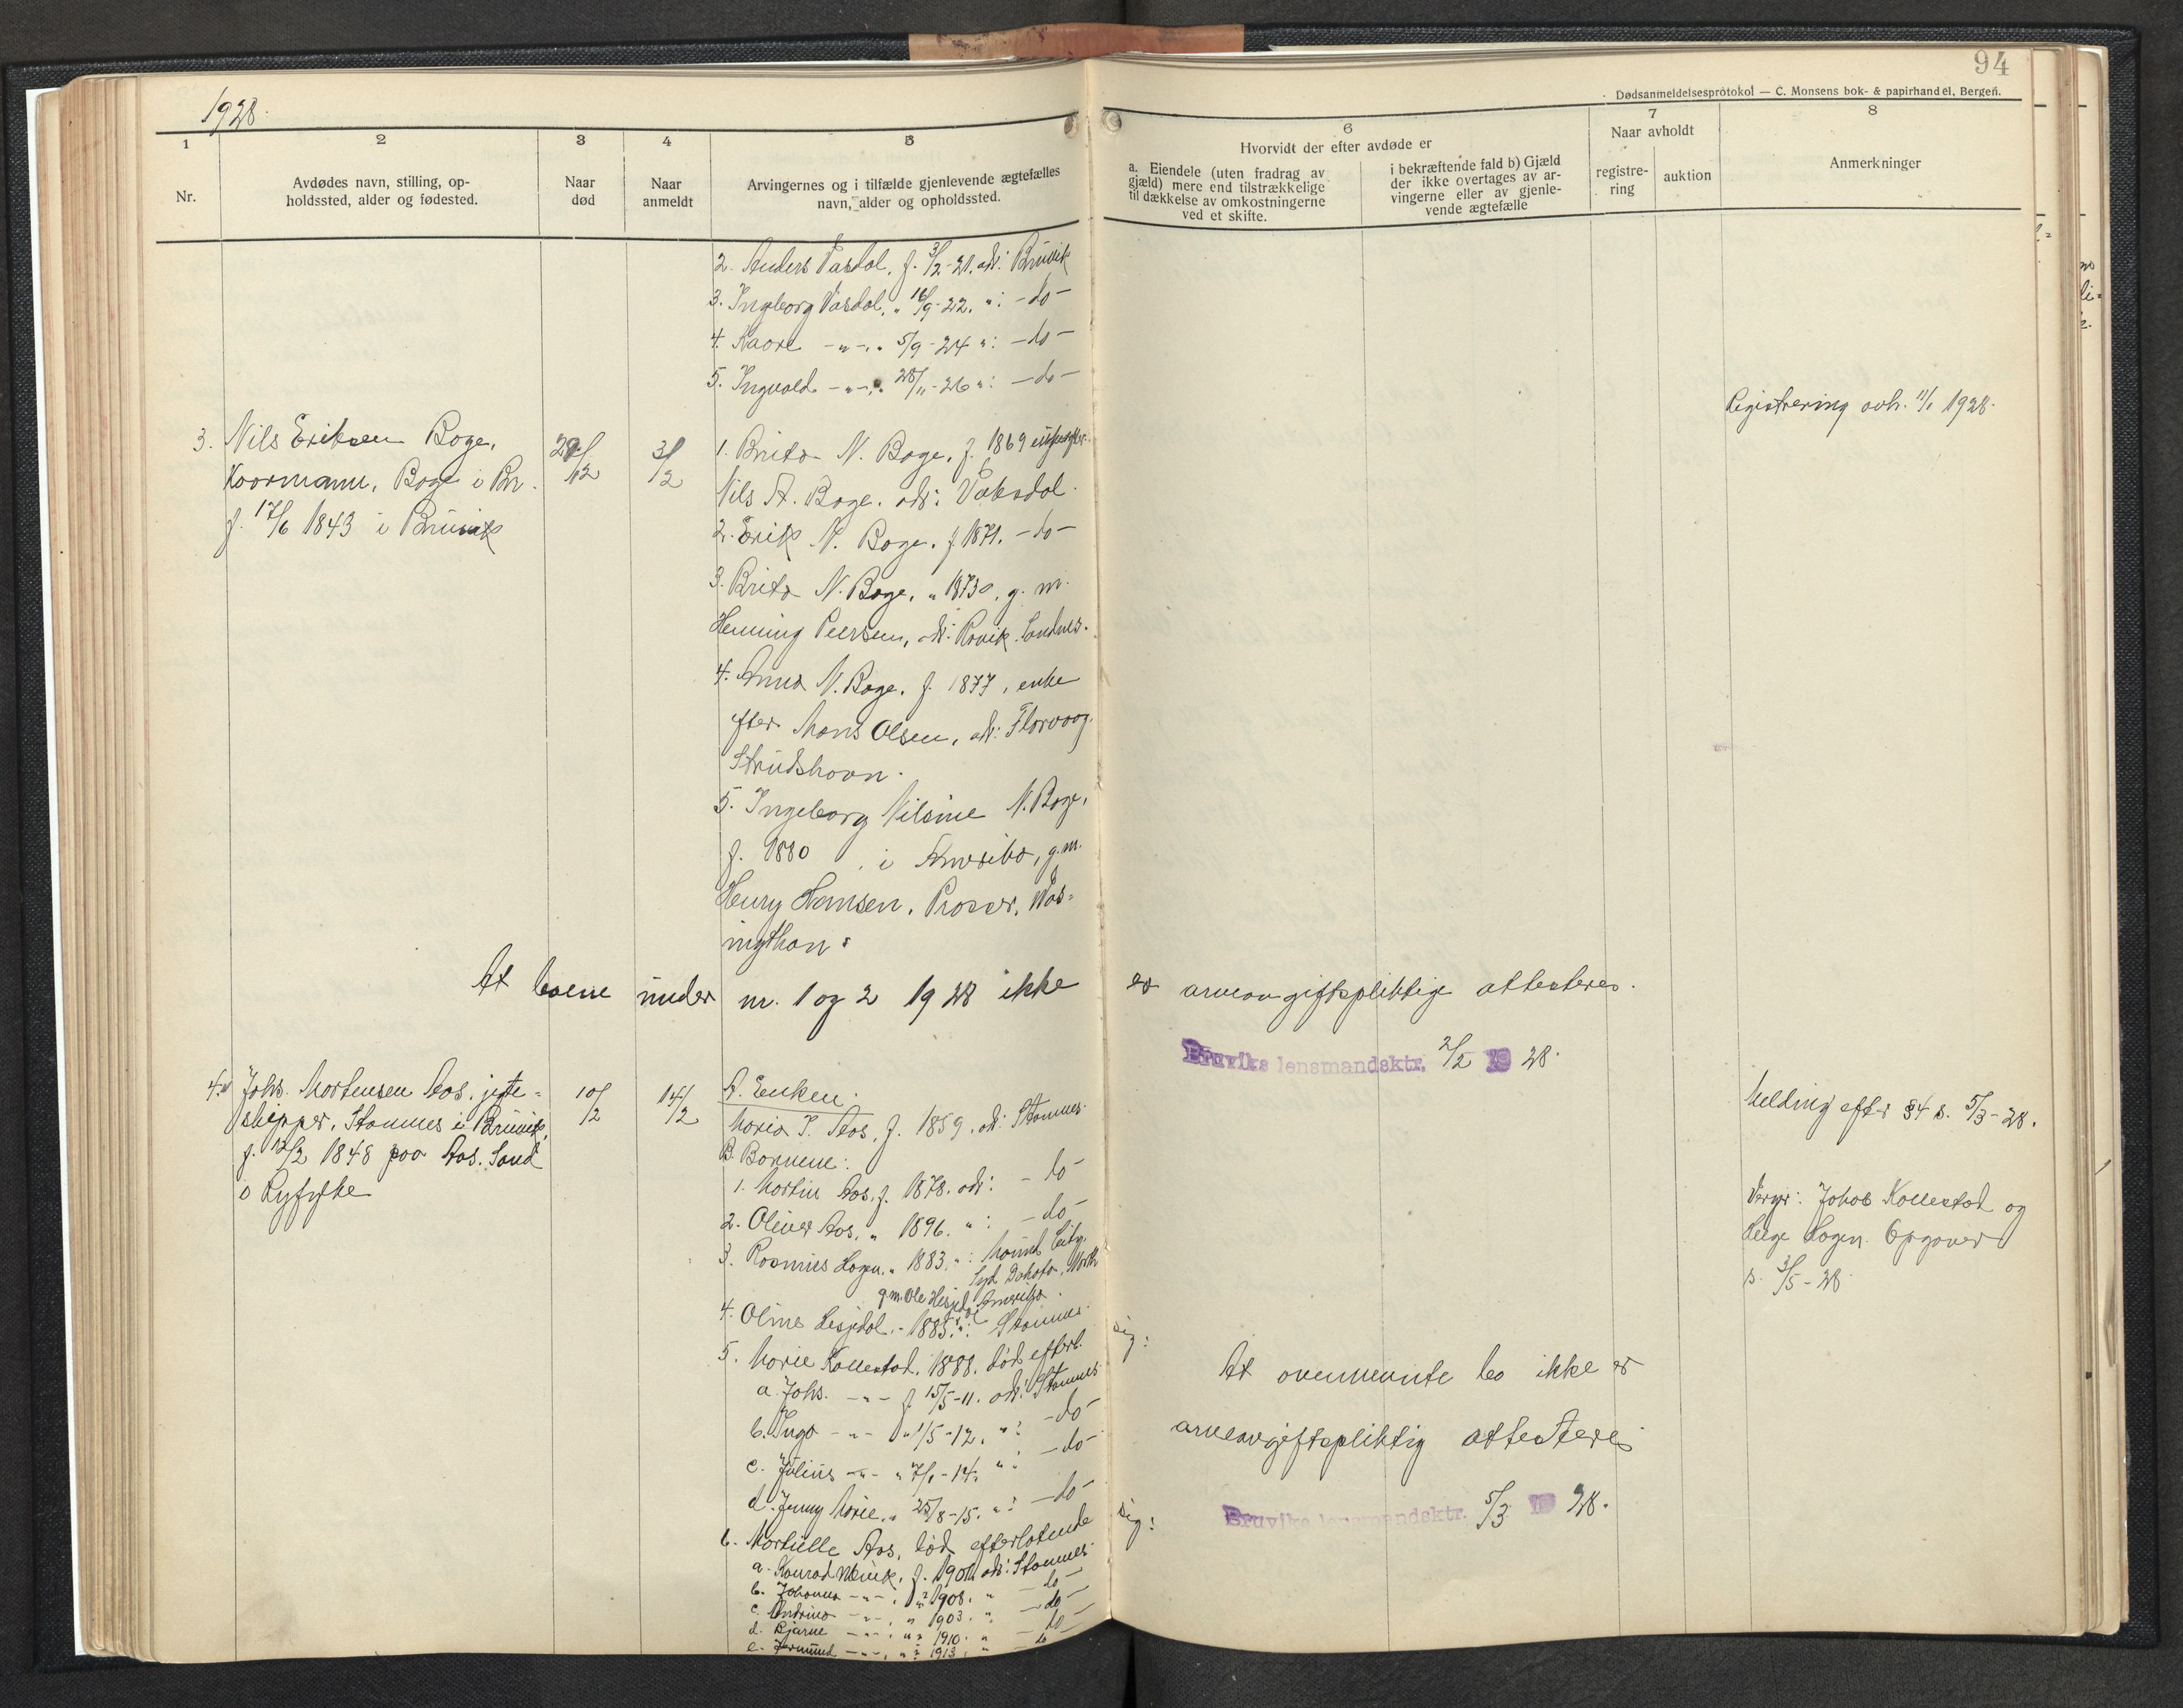 94
1928.
Dødsanmeldelsesprotokol — C. Monsens bok- & papirhandel, Bergen.
1
Nr.
2
Avdødes navn, stilling, op-
holdssted, alder og fødested.
3
Naar
død
4
Naar
anmeldt
5
Arvingernes og i tilfælde gjenlevende ægtefælles
navn, alder og opholdssted.
6
Hvorvidt der efter avdøde er
a. Eiendele (uten fradrag av
gjæld) mere end tilstrækkelige
til dækkelse av omkostningerne
ved et skifte.
i bekræftende fald b) Gjæld
der ikke overtages av ar-
vingerne eller av gjenle-
vende ægtefælle
7
Naar avholdt
registre-
ring
auktion
8
Anmerkninger
2. Anders Vasdal, f. 3/2-21. adr: Bruvik
3. Ingeborg Vasdal, " 16/9-22. ": -do-
4. Kaare -"-, " 5/9-24 ": -do-
5. Ingvald -"-, " 28/11-26 ": -do-
Registrering avh. 11/1 1928.
3. Nils Eriksen Boge,
Kaarmann, Boge i Br.
f. 17/6 1843 i Bruvik
29/12
3/2
1. Brita N. Boge, f. 1869 enke efter
Nils A. Boge. adr: Vaksdal.
2. Erik N. Boge, f. 1871. -do-
3. Brita N. Boge, " 1873, g. m.
Henning Peersen, adr: Sandnes.
4. Anna N. Boge, f. 1877, enke
efter Mons Olsen, adr: Florvaag
Strudshavn.
5. Ingeborg Nilsine N. Boge,
f. 1880 i Amerika, g. m.
Henry Hansen, Prosser, Was=
ingthon.
At boene under nr. 1 og 2 1928 ikke er arveavgiftspliktige attesteres.
Bruviks lensmandsktr. 2/2 19 28.
4. Johs. Mortensen Aas, jagte=
skipper, Stamnes i Bruvik,
f. 12/2 1848 paa Aas, Sand
i Ryfylke
10/2
14/2
A. Enken:
Maria J. Aas, f. 1859, adr: Stamnes.
B. Barnene:
1. Martin Aas, f. 1878. adr: -do-
2. Oliver Aas, " 1896. ": -do-
3. Rasmus " 1883. ": City.
Syd Dakota, North
Amerika.
g.m. Ole Hesjedal
4. Oline Hesjedal, - 1885. ": Stamnes.
5. Marie Kallestad, 1888. død efterl.
a. Johs. -"- f. 15/5-11. adr: Stamnes
b. Inga -"- " 1/5-12. ": -do-
c. Julius -"- " 7/1-14. ": -do-
d. Jenny Marie, " 25/8-15. ": -do-
6. død efterlatende
a. Konrad f. 1901 adr: Stamnes
b. Johanna -"-, " 1908. " -do-
c. Andrine -"-, " 1903. " -do-
d. Bjarne -"-, " 1910. " -do-
e. -"-, " 1913, " -do-
Melding efter §4 s. 5/3-28.
Verger: Johs Kallestad og
Helge Opgaver
s. 3/5-28.
sig:
At ovennevnte bo ikke er
arveavgiftspliktig attesteres
sig:
Bruviks lensmandsktr. 5/3 19 28.